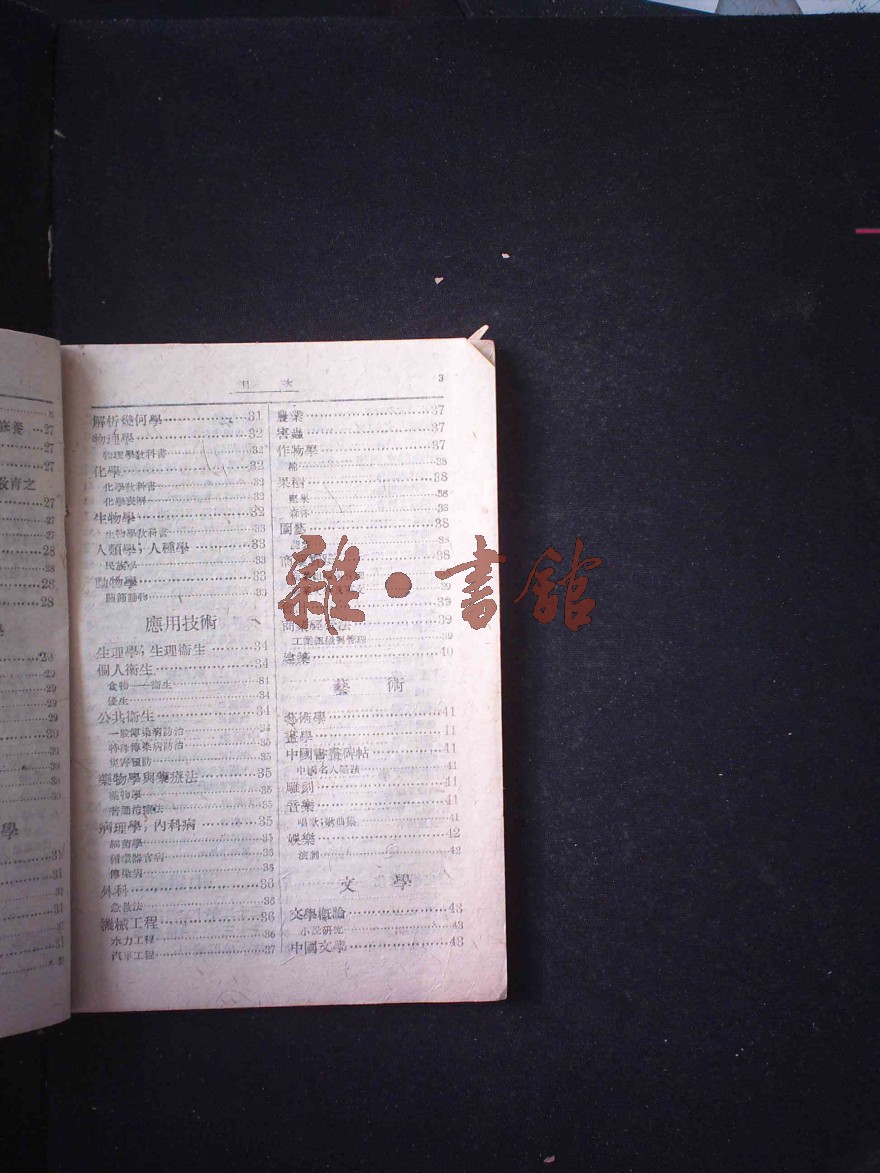 目 次
3
解析幾何學 31
物理學 32
物理學教科書 32
化學 32
化學教科書 32
化學表解 32
生物學 32
生物學教科書 33
人類學；人種學 33
民族學 33
動物學 33
應用技術
生理學；生理衞生 34
個人衞生 34
食物——衞生 34
優生 34
公共衞生 34
一般傳染病防治
特殊傳染病防治 35
災害預防 35
藥物學與藥療法 35
藥物學 35
普通治療法 35
病理學；內科病 35
細菌學 35
循環器官病 35
傳染病 35
外科 36
急救法 36
機械工程 36
水力工程 36
汽車工程 37
農業 37
害蟲 37
作物學 37
棉 38
果樹 38
森林 38
園藝 38
38
39
39
工業組織與管理 39
建築 40
藝 術
藝術學 41
畫學 41
中國書畫碑帖 41
中國名人墨蹟 41
雕刻 41
音樂 41
唱歌；歌曲集 41
娛樂 42
演劇 42
文 學
文學概論 43
小說研究 43
中國文學 43
27
27
27
教育之
27
27
28
28
28
28
學
29
29
29
29
29
30
30
學
31
31
31
31
雜·書館